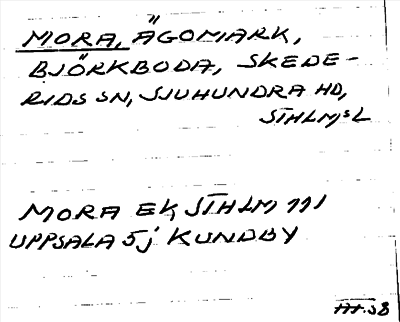 MORA, ÄGOMARK,
BJÖRKBODA, SKEDE-
RIDS SN, SJUHUNDRA HD,
STHLMS L
MORA EK, STHLM 111
UPPSALA 5j KUNDBY